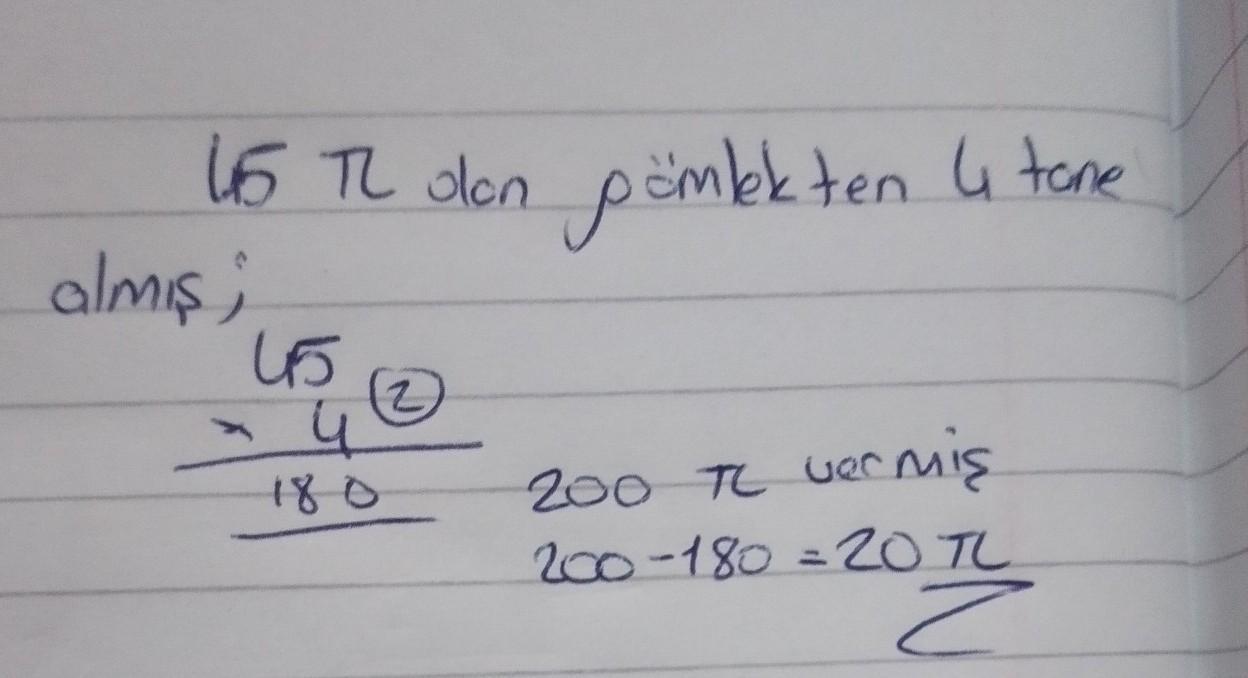 45 TL dan gömlekten 4 tane
almış;
45
x 4 2
180
200 TL vermiş
200-180=20 TL